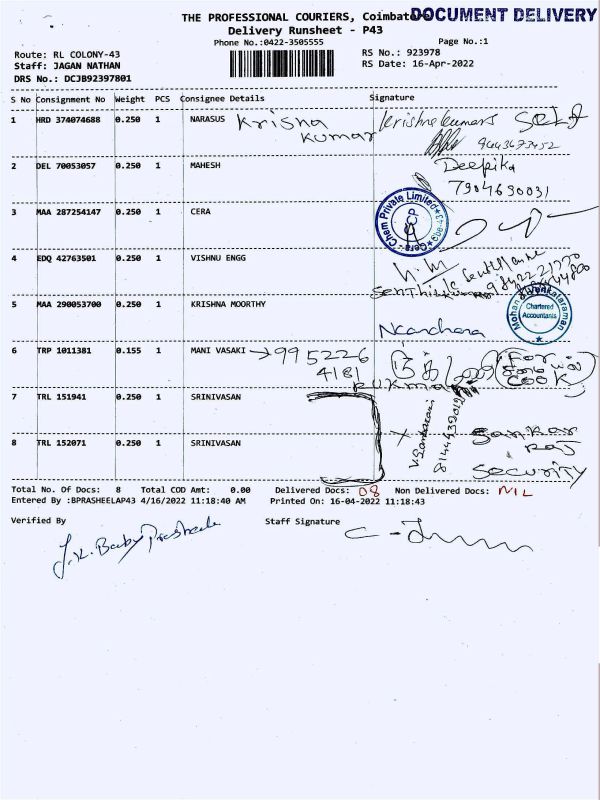 THE PROFESSIONAL COURIERS, Coimbato DOCUMENT DELIVERY
Delivery Runsheet - P43
Phone No.:0422-3505555
Page No.:1
Route: RL COLONY-43
RS No.: 923978
Staff: JAGAN NATHAN
RS Date: 16-Apr-2022
DRS No.: DCJB92397801
S No Consignment No Weight PCS Consignee Details Signature
1 HRD 374074688 0.250 1 NARASUS Krishna Krishnakumars Self
Kumar 9443673452
2 DEL 70053057 0.250 1 MAHESH Deepika
7904630031
3 MAA 287254147 0.250 1 CERA
Cera-Chem Private Limited
4 EDQ 42763501 0.250 1 VISHNU ENGG
5 MAA 290053700 0.250 1 KRISHNA MOORTHY
Mohan & Venkataraman
Chartered
Accountants
6 TRP 1011381 0.155 1 MANI VASAKI 995226
4181
COOK
7 TRL 151941 0.250 1 SRINIVASAN
8144439012
8 TRL 152071 0.250 1 SRINIVASAN Sankar
Raj
Security
Total No. Of Docs: 8 Total COD Amt: 0.00 Delivered Docs: 08 Non Delivered Docs: NIL
Entered By :BPRASHEELAP43 4/16/2022 11:18:40 AM Printed On: 16-04-2022 11:18:43
Verified By
Staff Signature